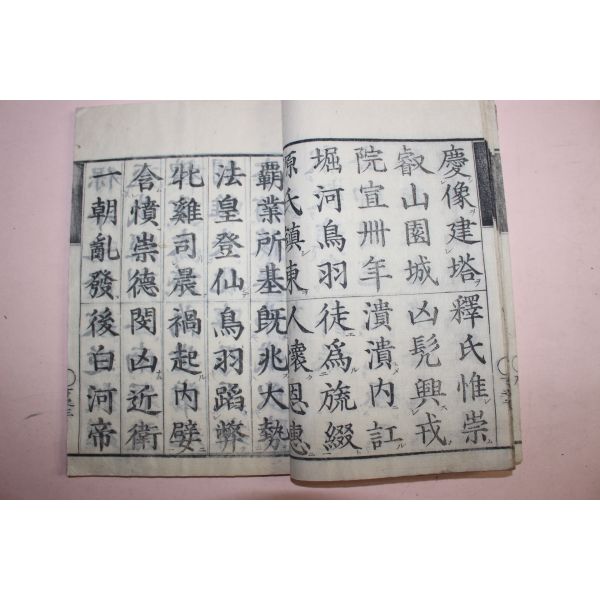 慶像建塔釋氏惟崇
叡山園城凶髡興戎
院宣卌年潰潰内訌
堀河鳥羽徒為旒綴
源氏鎮東人懷恩惠
覇業所基既兆大勢
法皇登仙鳥羽蹈弊
牝雞司晨禍起内嬖
含憤崇德閔凶近衛
一朝亂發後白河帝